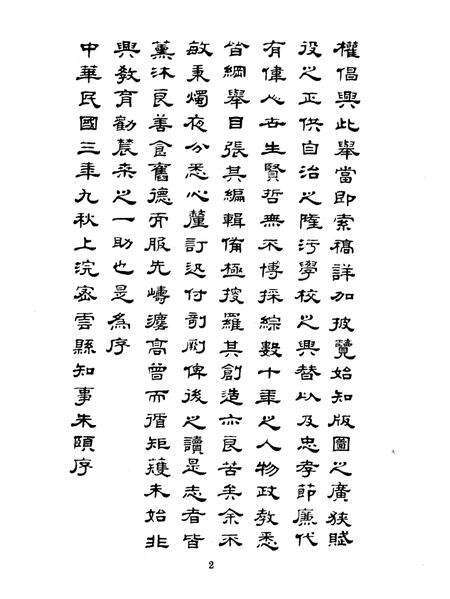 權倡興此舉當即索稿詳加披覽始知版圖之廣狹賦
役之正供自治之隆污學校之興替以及忠孝節廉代
有偉人世生賢哲無不博採綜數十年之人物政教悉
皆綱舉目張其編輯備極搜羅其創造亦良苦矣余不
敏秉燭夜分悉心釐訂迅付剞劂俾後之讀是志者皆
薰沐良善食舊德而服先疇溯高曾而循矩矱未始非
興教育勸農桑之一助也是為序
中華民國三年九秋上浣密雲縣知事朱頤序
2